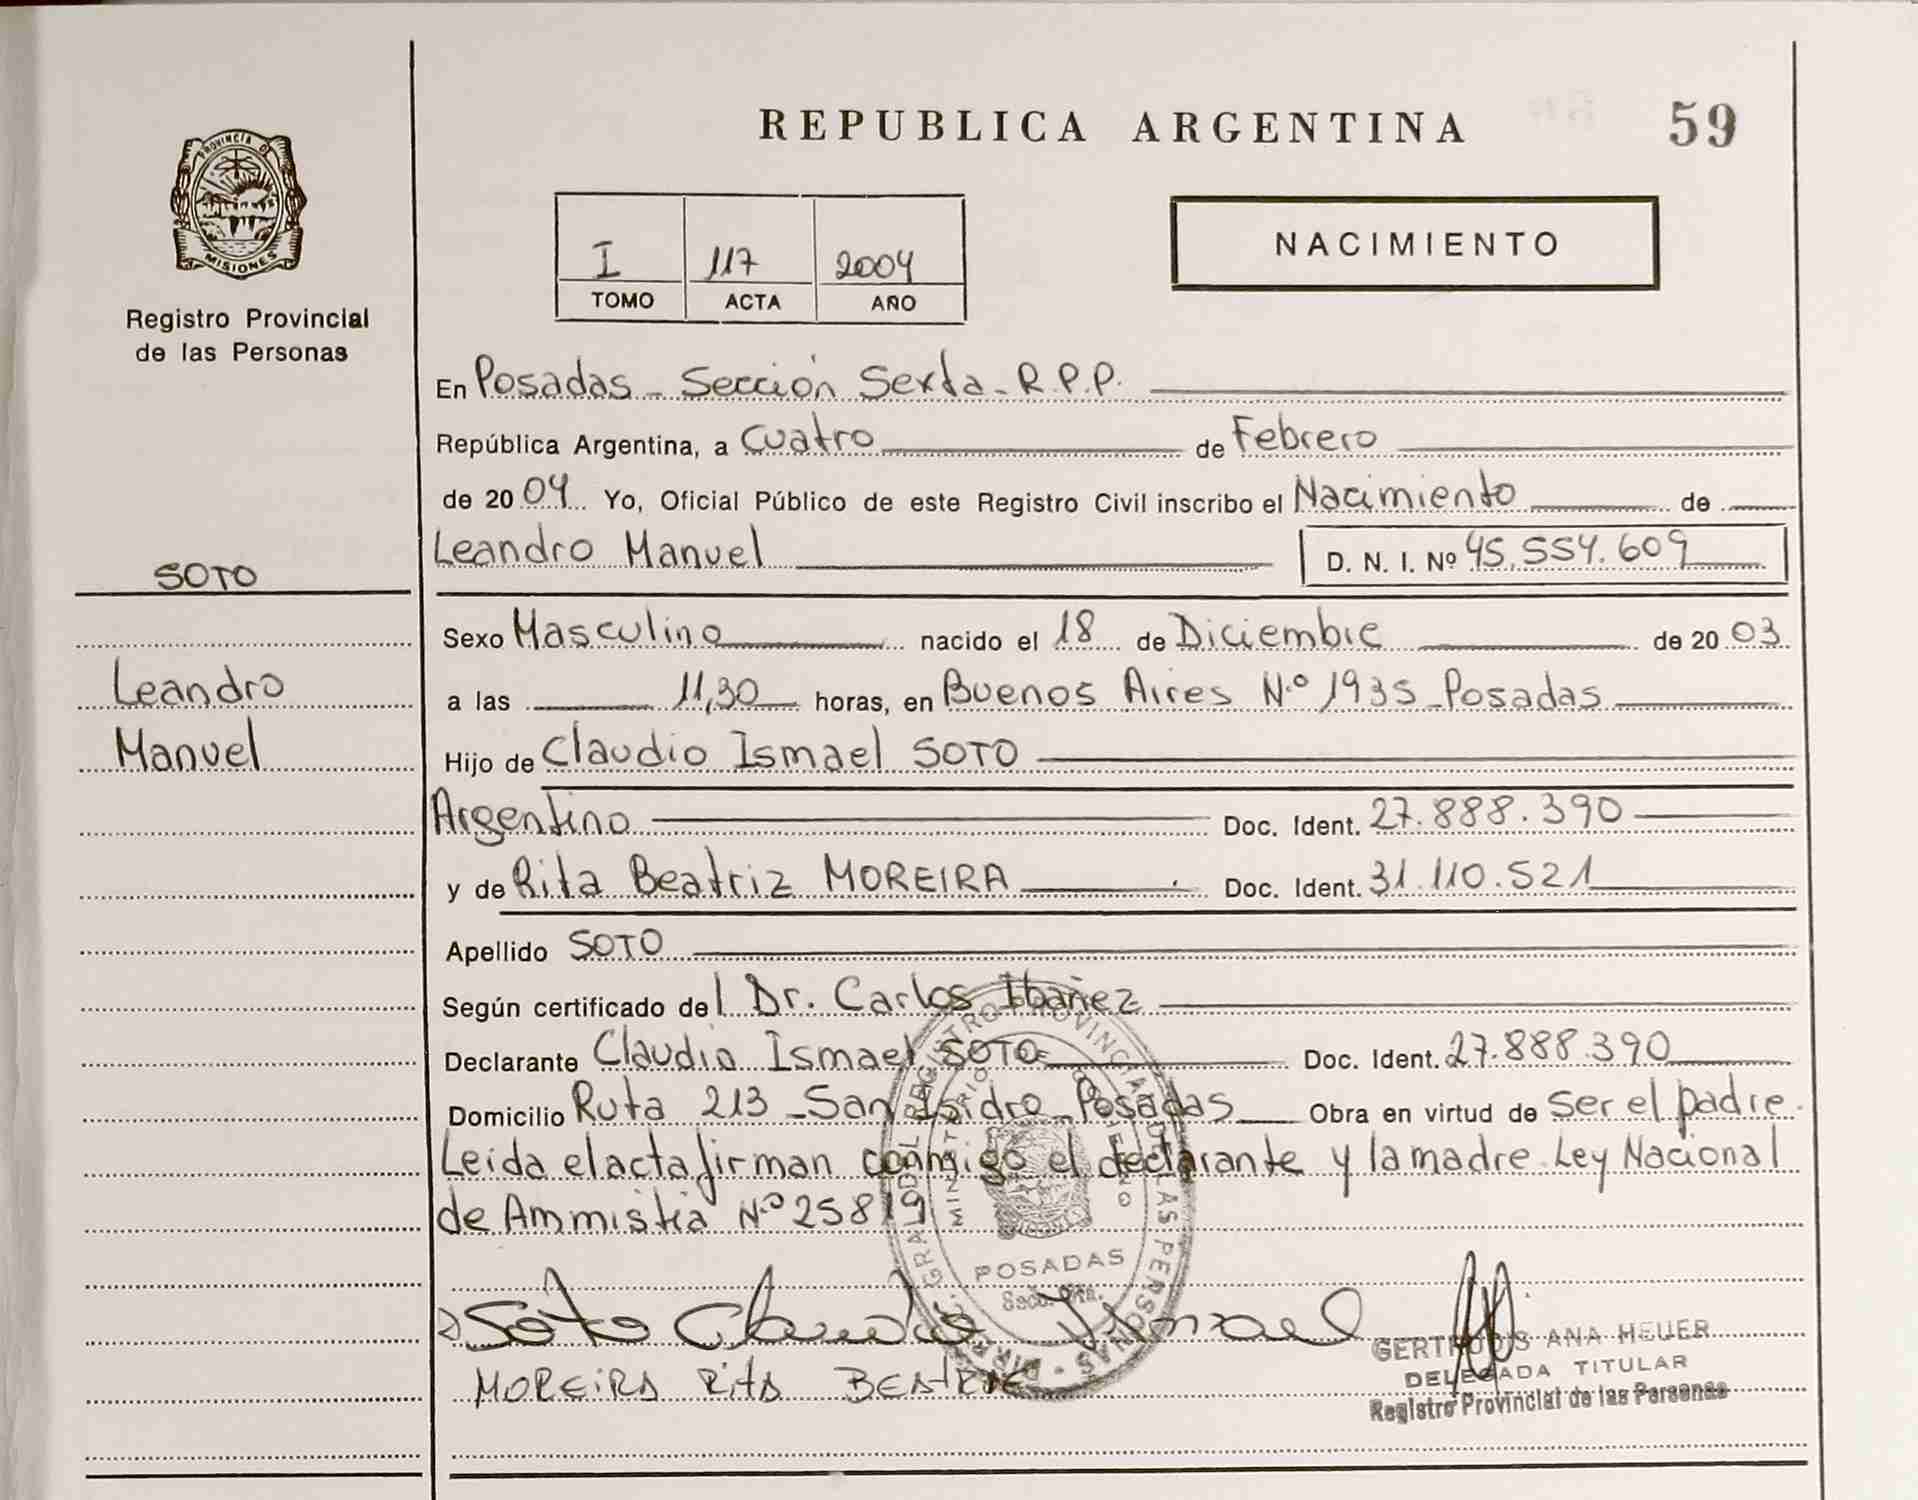 REPUBLICA ARGENTINA
59
PROVINCIA DE
MISIONES
Registro Provincial
de las Personas
I 117 2004
TOMO ACTA AÑO
NACIMIENTO
En Posadas - Sección Sexta - R.P.P.
República Argentina, a Cuatro de Febrero
de 20 04 Yo, Oficial Público de este Registro Civil inscribo el Nacimiento de
Leandro Manuel D. N. I. Nº 45.554.609
SOTO
Leandro
Manuel
Sexo Masculino nacido el 18 de Diciembre de 20 03
a las 11,30 horas, en Buenos Aires N.º 1935 - Posadas
Hijo de Claudio Ismael SOTO
Argentino Doc. Ident. 27.888.390
y de Rita Beatriz MOREIRA Doc. Ident. 31.110.521
Apellido SOTO
Según certificado del Dr. Carlos Ibañez
Declarante Claudio Ismael SOTO Doc. Ident. 27.888.390
Domicilio Ruta 213 - San Isidro - Posadas Obra en virtud de Ser el padre.
Leida el acta firman conmigo el declarante y la madre. Ley Nacional
de Ammistia N.º 25819
POSADAS
Soto Claudio Ismael
MOREIRA RITA BEATRIZ
GERTRUDIS ANA HEUER
DELEGADA TITULAR
Registro Provincial de las Personas